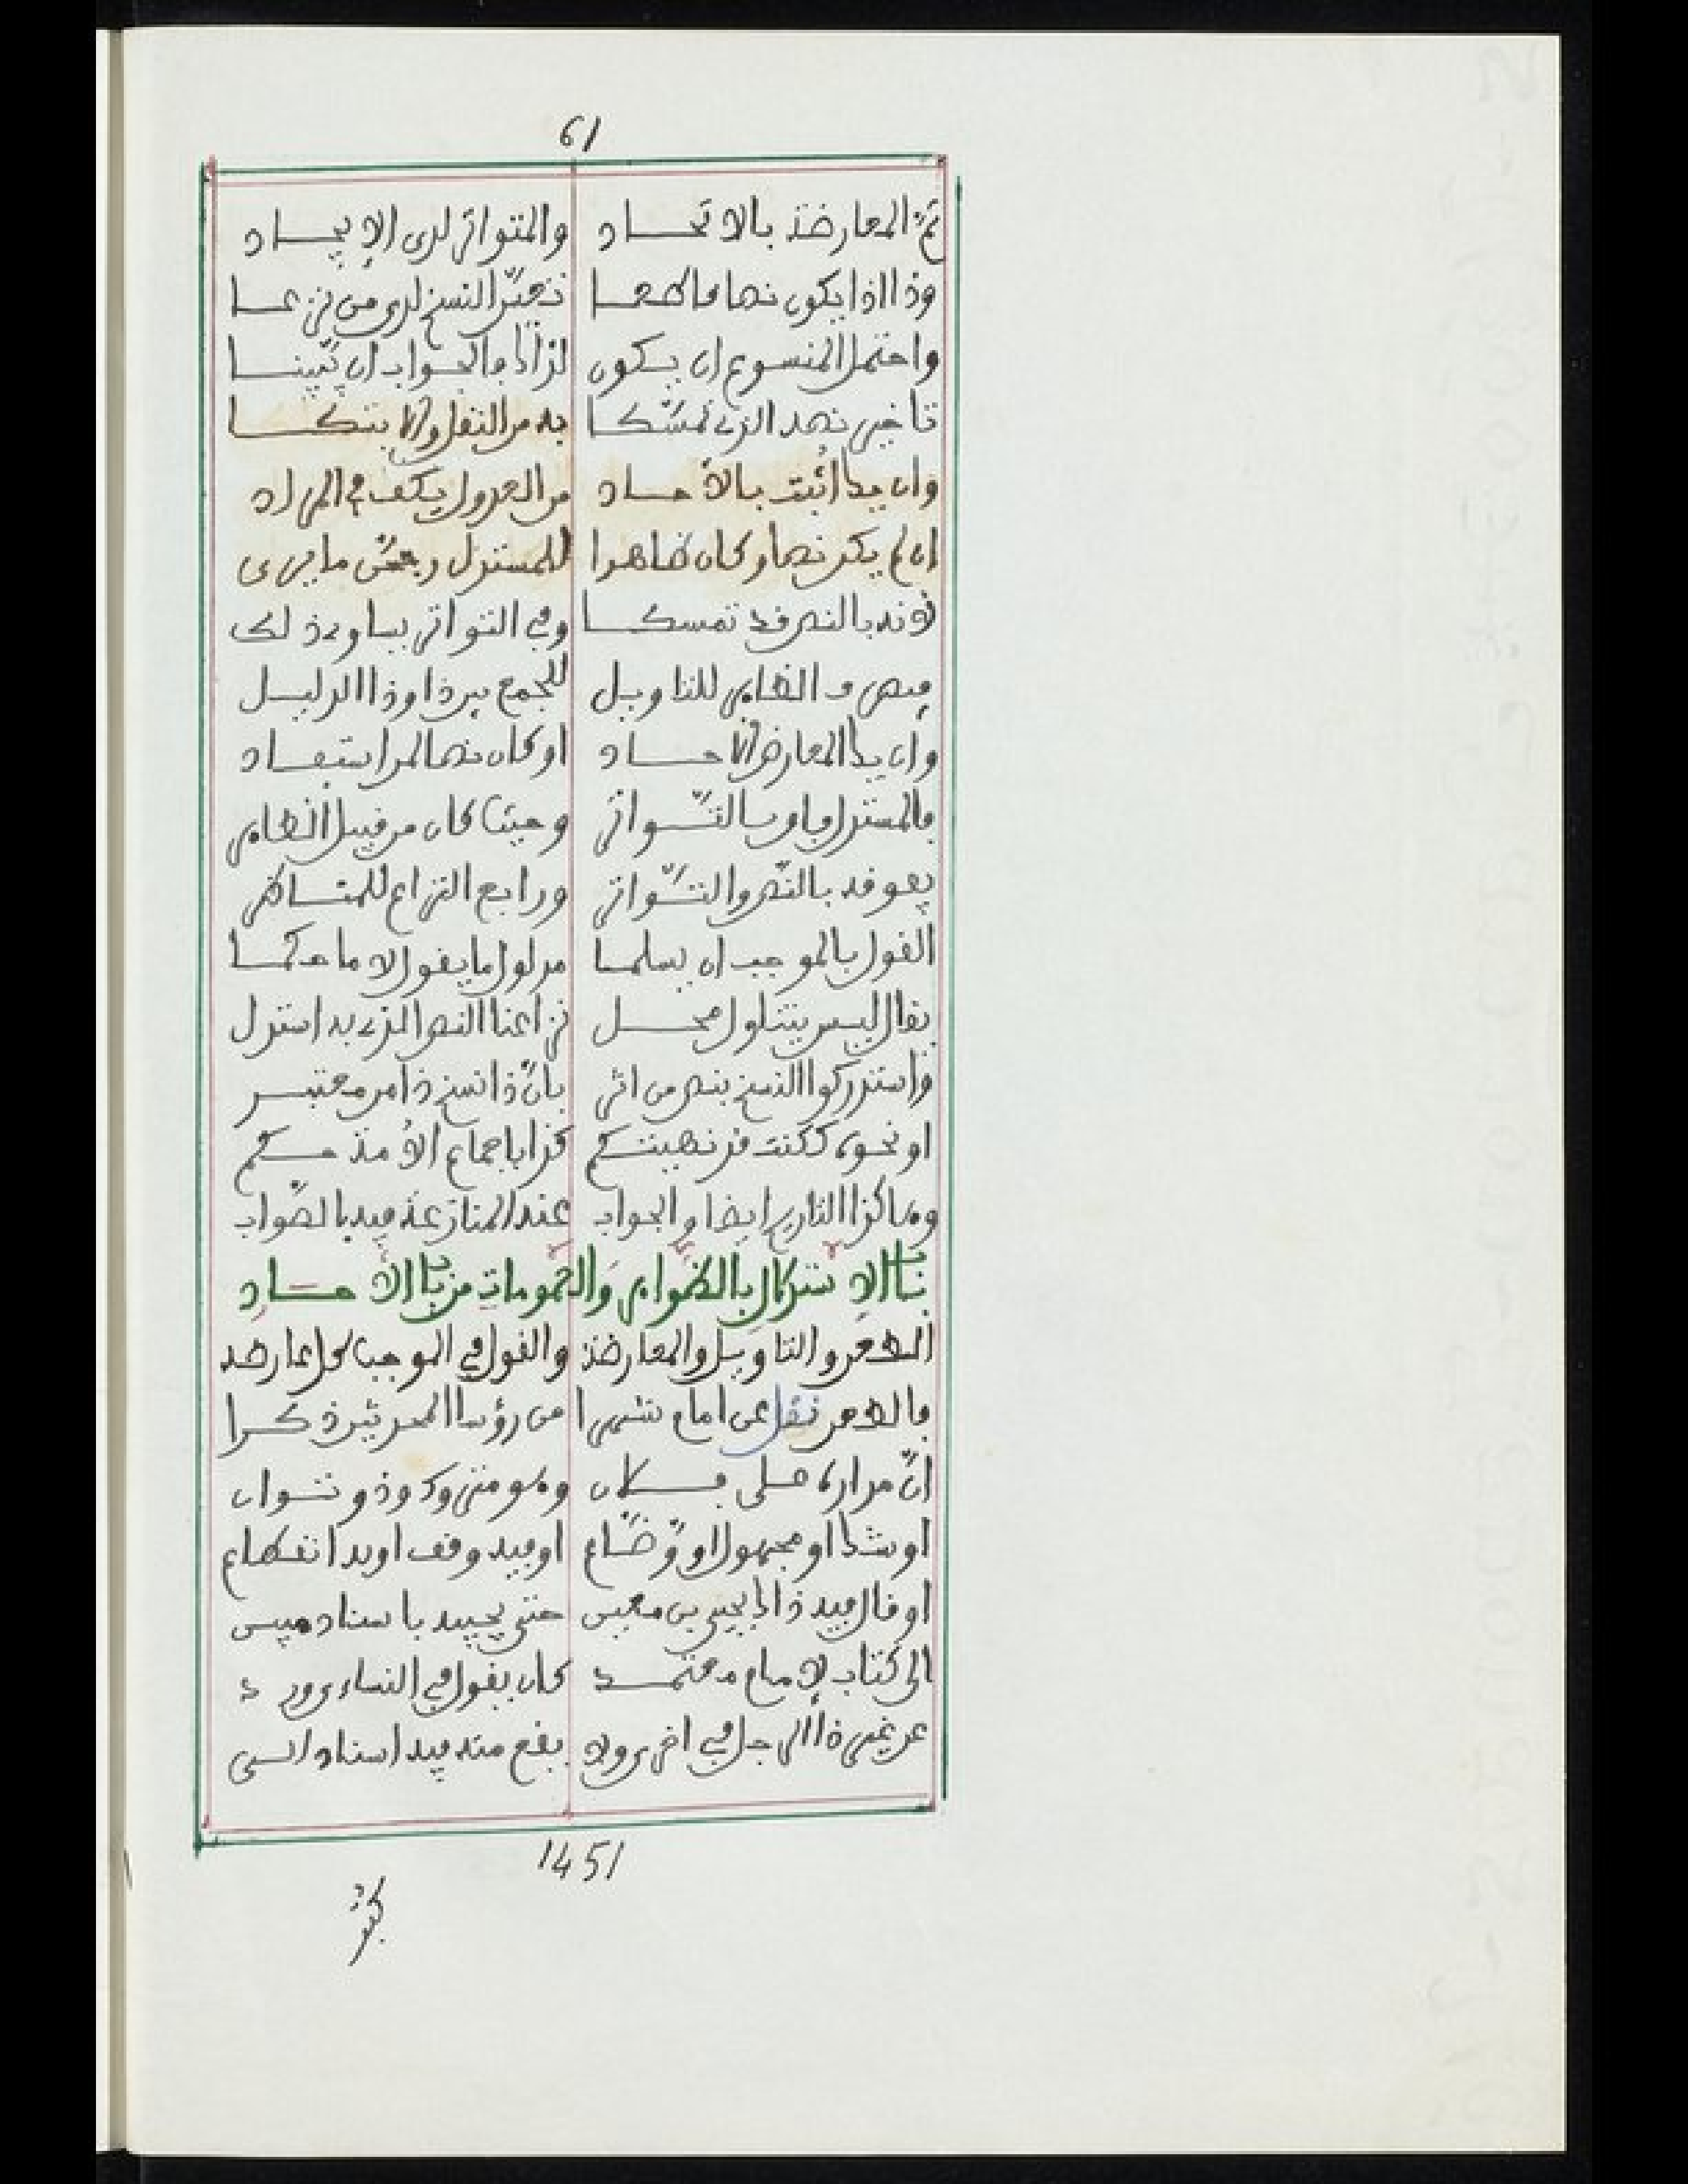 61
ثم المعارضة بالاتحاد والمتواتر لدى الإيجاد
وذا اذا يكون نصا قاطعا تعين النسخ لدى من نزعا
واحتمل المنسوخ ان يكون لذاك والجواب ان تبينا
تاخير نصه الذي تمسكا به من النقل والا يتركا
وان يك اثبت بالآحاد من العدول يكف في المراد
ان لم يكن نصا وكان ظاهرا للمستدل رجحن ما يرى
لانه بالنص قد تمسكا وفي التواتر يساوي ذلك
فيصرف الظاهر للتاويل للجمع بين ذا وذا الدليل
وان يك المعارض الآحاد او كان نصا لمرا يستفاد
فالمستدل فاق بالتواتر وحيث كان من قبيل الظاهر
يفوقه بالنص والتواتر ورابع النزاع للمناظر
القول بالموجب ان يسلما مدلول ما يقول لا ما حكما
يقال ليس يتناول محل نزاعنا النص الذي به استدل
واستدركوا النسخ بنص من اثر بان ذا نسخ ذا من معتبر
او نحوه ككنت قد نهيتكم كذا باجماع الأمة حكم
وهاكذا التاريخ ايضا والجواب عند المنازعة فيه بالصواب
باب الاستدلال بالظواهر والعمومات من باب الآحاد
الطعن والتاويل والمعارضة والقول في الموجب كل عارضه
فالطعن نقل عن امام شهرا من رؤسا المحدثين ذكرا
ان مداره على فلان وهو متروك وذو نشوان
او شك او مجهول او وضاع او فيه وقف او به انقطاع
او قال فيه ذاك يحيى بن معين حتى يجيبه باسناد مبين
الى كتاب لإمام معتمد كان يقول في النساءي ورد
عن غير ذا الرجل في اخرى ولا يقع منه فيه اسناد
1451
كبو